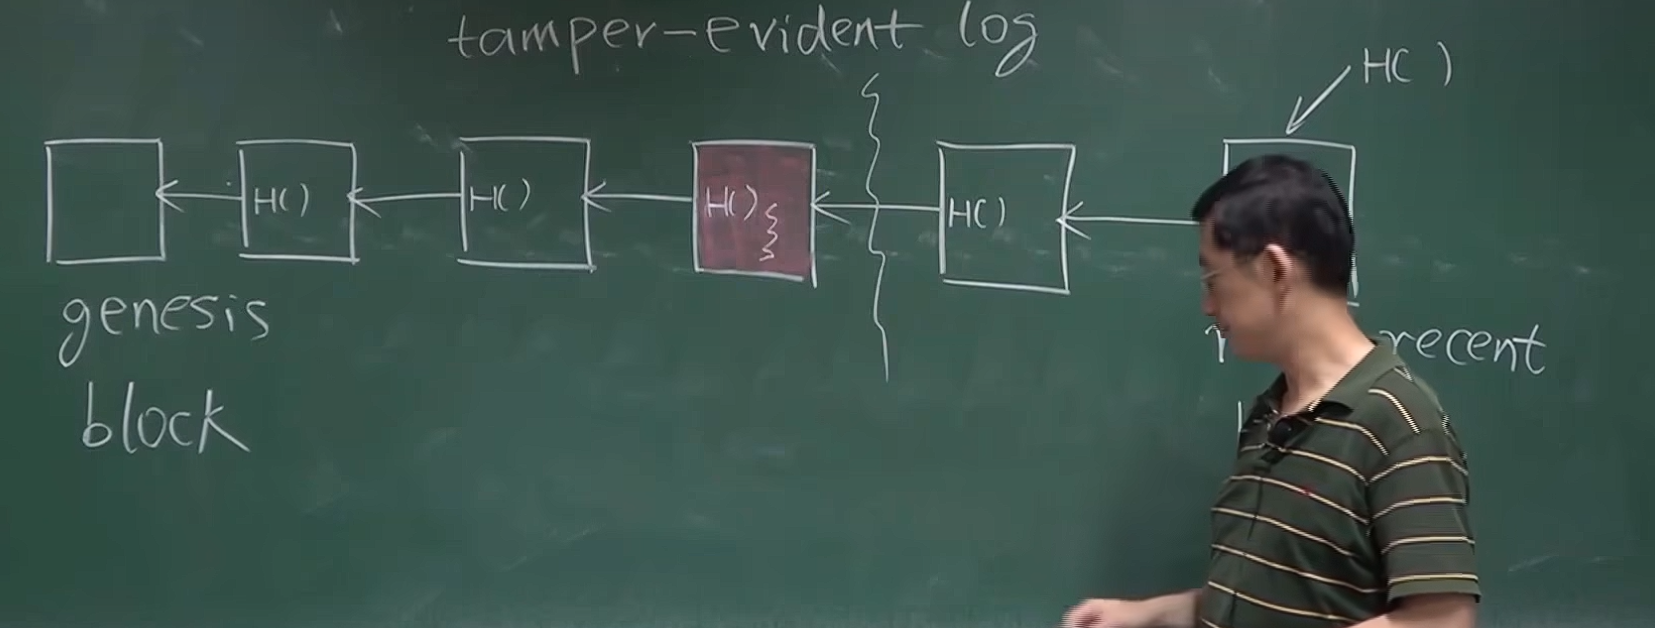 tamper-evident log
H( )
H()
H()
H()
H()
genesis
block
recent